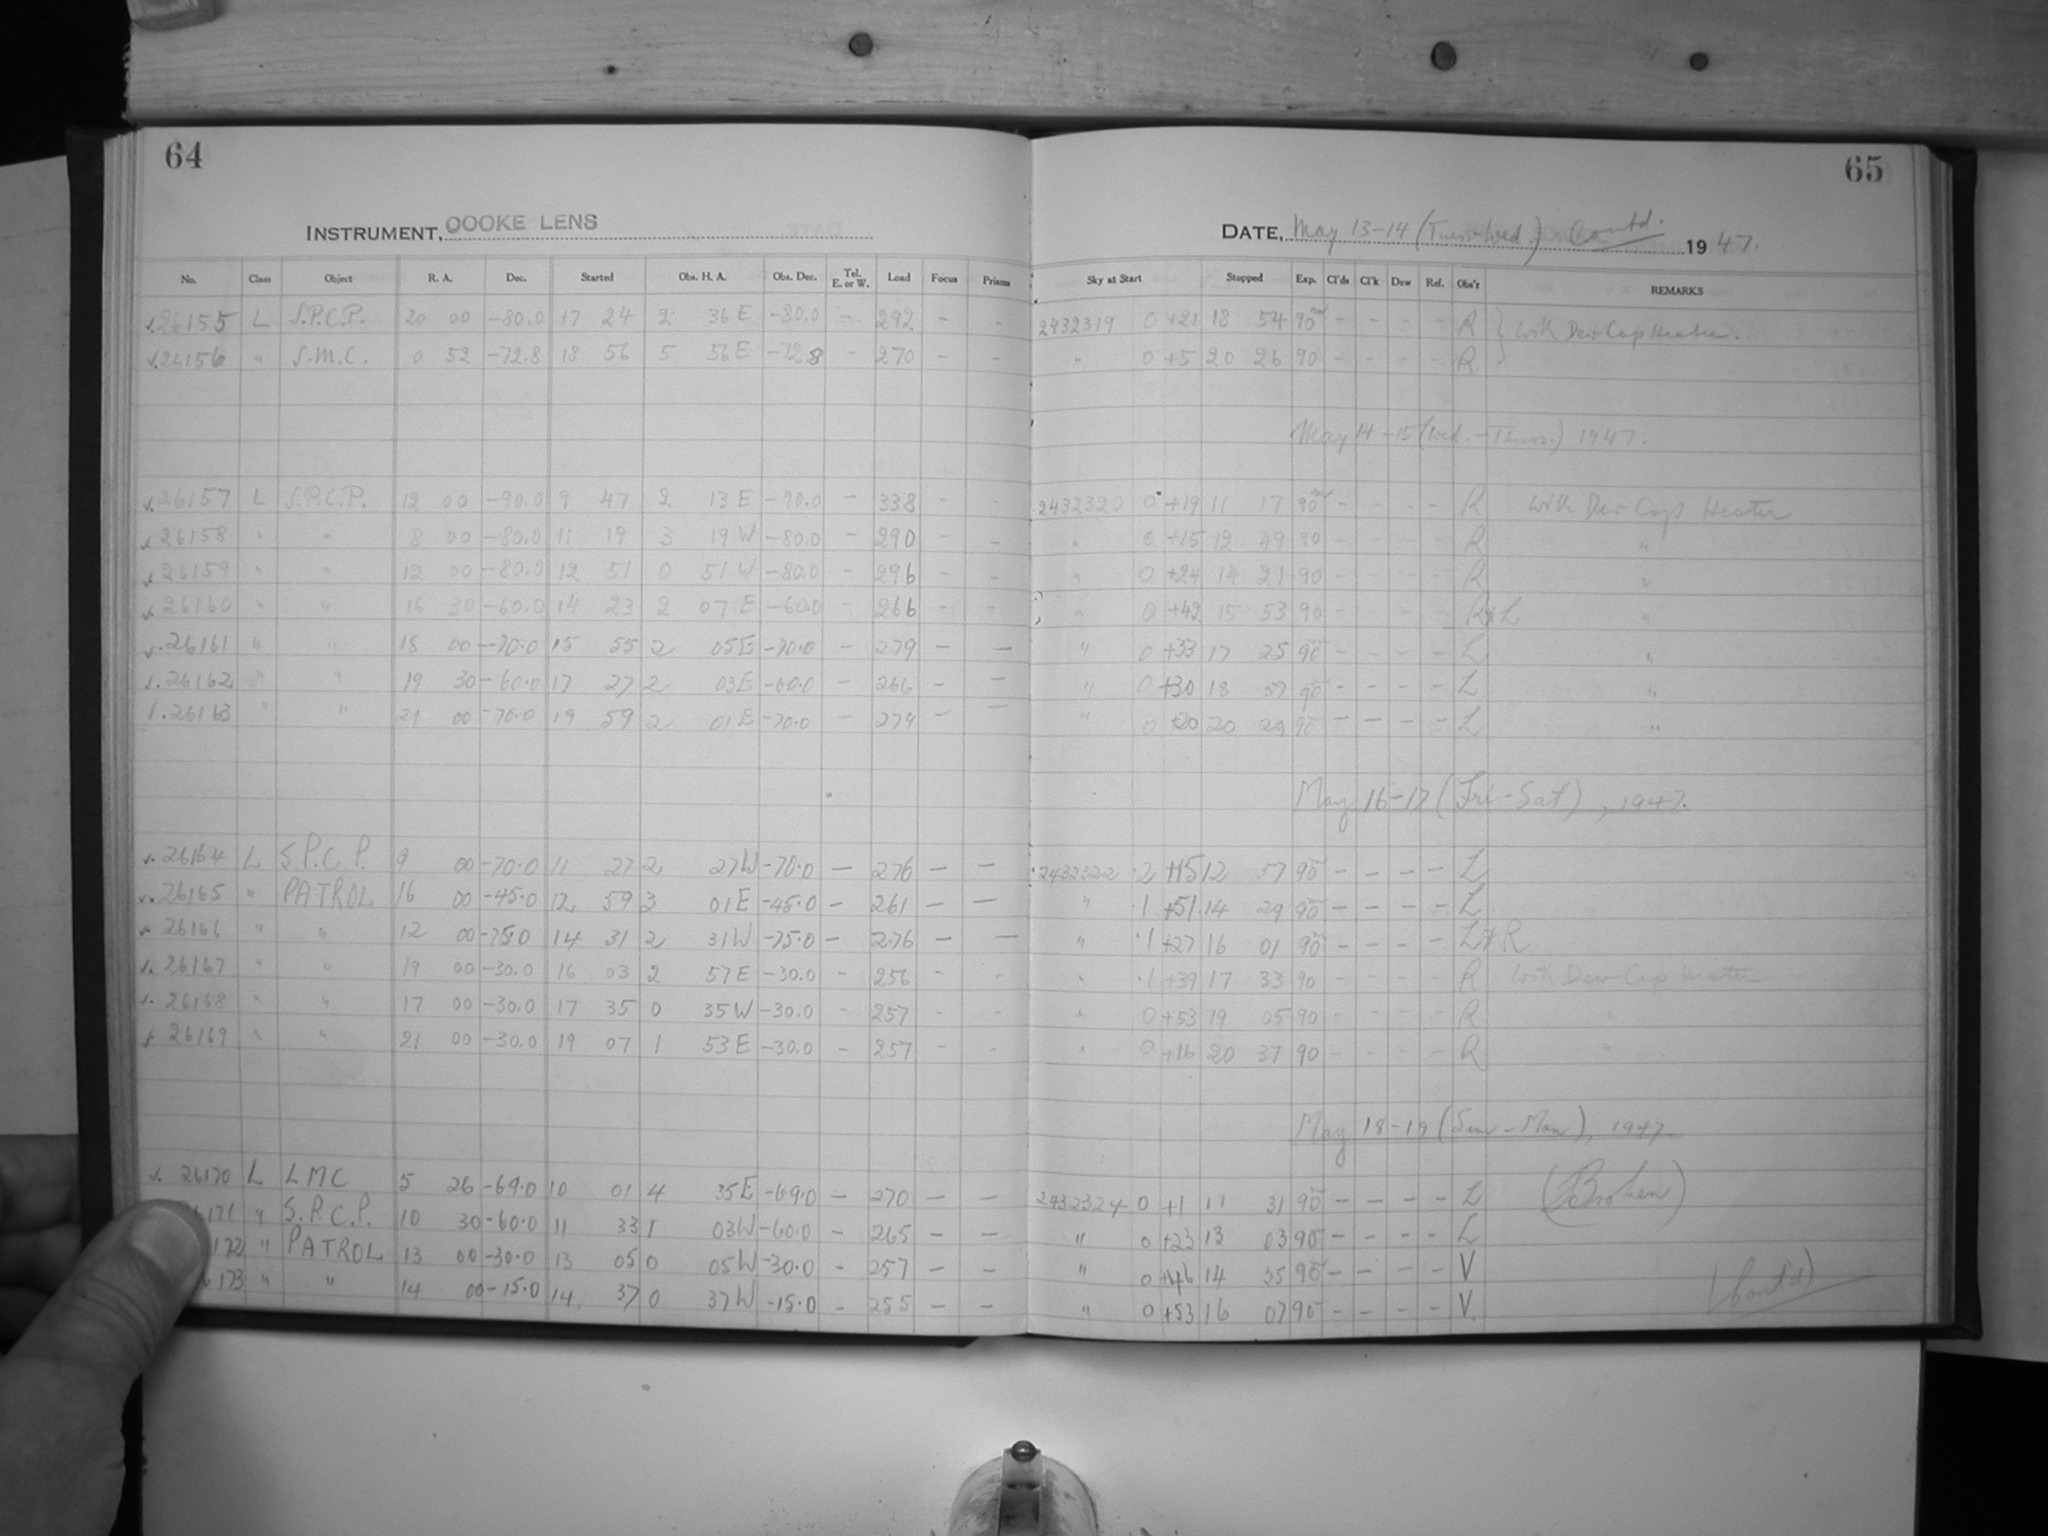 64
65
INSTRUMENT, COOKE LENS
DATE, May 13-14 (Tues.-Wed.) Contd. 1947.
No. Class Object R. A. Dec. Started Obs. H. A. Obs. Dec. Tel. E. or W. Load Focus Prisms Sky at Start Stopped Exp. Cl'ds Cl'k Dew Ref. Obs'r REMARKS
26155 L S.P.C.P. 20 00 -80.0 17 24 2 36 E -80.0 - 292 - - 2432319 0 +21 18 54 90 - - - - R With Dew Cap Heater.
26156 " S.M.C. 0 52 -72.8 18 56 5 56 E -72.8 - 270 - - " 0 +5 20 26 90 - - - - R
May 14-15 (Wed.-Thurs.) 1947.
26157 L S.P.C.P. 12 00 -90.0 9 47 2 13 E -90.0 - 338 - - 2432320 0 +19 11 17 90 - - - - R With Dew Cap Heater
26158 " " 8 00 -80.0 11 19 3 19 W -80.0 - 290 - - " 0 +15 12 49 90 - - - - R "
26159 " " 12 00 -80.0 12 51 0 51 W -80.0 - 296 - - " 0 +24 14 21 90 - - - - R "
26160 " " 16 30 -60.0 14 23 2 07 E -60.0 - 266 - - " 0 +42 15 53 90 - - - - R & L "
26161 " " 18 00 -70.0 15 55 2 05 E -70.0 - 279 - - " 0 +33 17 25 90 - - - - L "
26162 " " 19 30 -60.0 17 27 2 03 E -60.0 - 266 - - " 0 +30 18 57 90 - - - - L "
26163 " " 21 00 -70.0 19 59 2 01 E -70.0 - 274 - - " 0 +20 20 29 90 - - - - L "
May 16-17 (Fri-Sat), 1947.
26164 L S.P.C.P. 9 00 -70.0 11 27 2 27 W -70.0 - 276 - - 2432322 .2 +15 12 57 90 - - - - L
26165 " PATROL 16 00 -45.0 12 59 3 01 E -45.0 - 261 - - " .1 +51 14 29 90 - - - - L
26166 " " 12 00 -75.0 14 31 2 31 W -75.0 - 276 - - " .1 +27 16 01 90 - - - - L & R
26167 " " 19 00 -30.0 16 03 2 57 E -30.0 - 256 - - " .1 +39 17 33 90 - - - - R With Dew Cap Heater
26168 " " 17 00 -30.0 17 35 0 35 W -30.0 - 257 - - " 0 +53 19 05 90 - - - - R "
26169 " " 21 00 -30.0 19 07 1 53 E -30.0 - 257 - - " 0 +16 20 37 90 - - - - R "
May 18-19 (Sun-Mon), 1947
26170 L LMC 5 26 -69.0 10 01 4 35 E -69.0 - 270 - - 2432324 0 +1 11 31 90 - - - - L (Broken)
171 " S.P.C.P. 10 30 -60.0 11 33 1 03 W -60.0 - 265 - - " 0 +23 13 03 90 - - - - L
172 " PATROL 13 00 -30.0 13 05 0 05 W -30.0 - 257 - - " 0 +46 14 35 90 - - - - V
6173 " " 14 00 -15.0 14 37 0 37 W -15.0 - 255 - - " 0 +53 16 07 90 - - - - V.
(Contd)